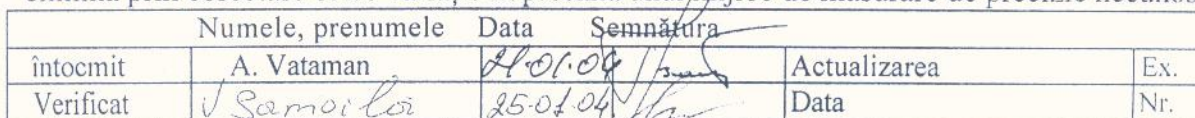 Numele, prenumele Data Semnătura
întocmit A. Vataman 21.01.04 Actualizarea Ex.
Verificat V Samoilă 25.01.04 Data Nr.